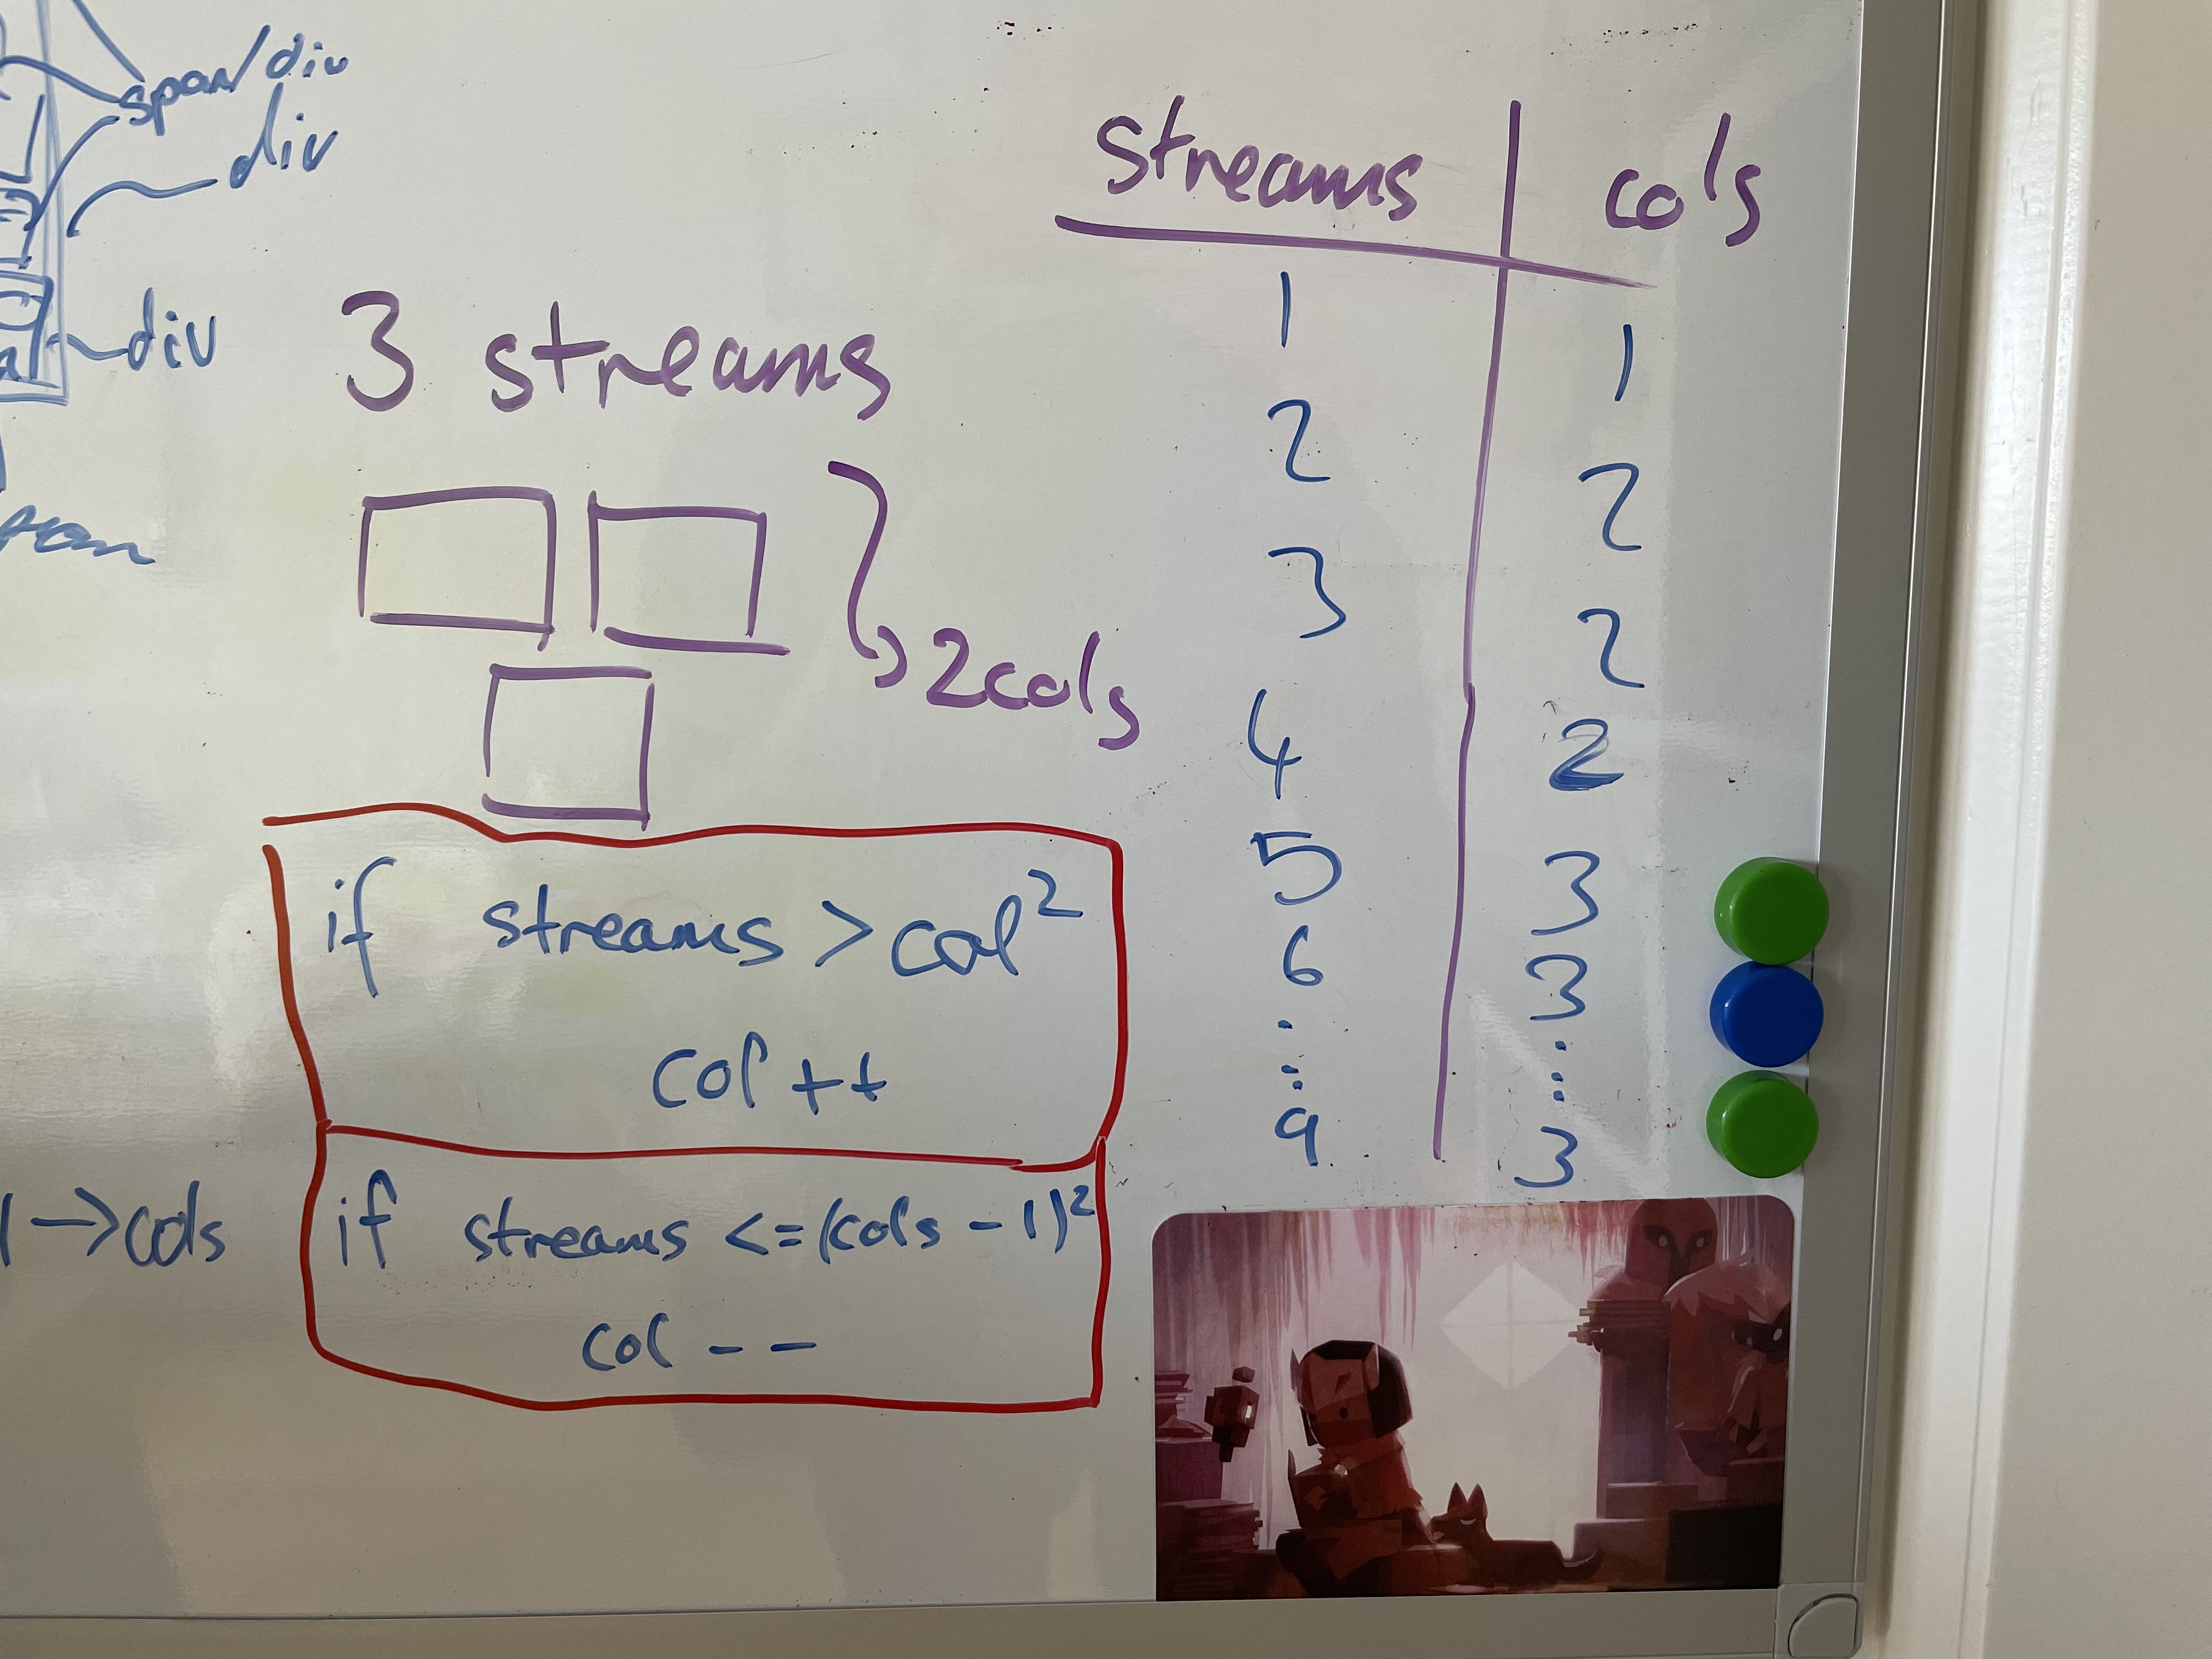 span/div
div
div
3 streams
2cols
if streams > col²
col ++
if streams <= (cols - 1)²
col - -
→cols
streams | cols
1 1
2 2
3 2
4 2
5 3
6 3
⋮ ⋮
9 3